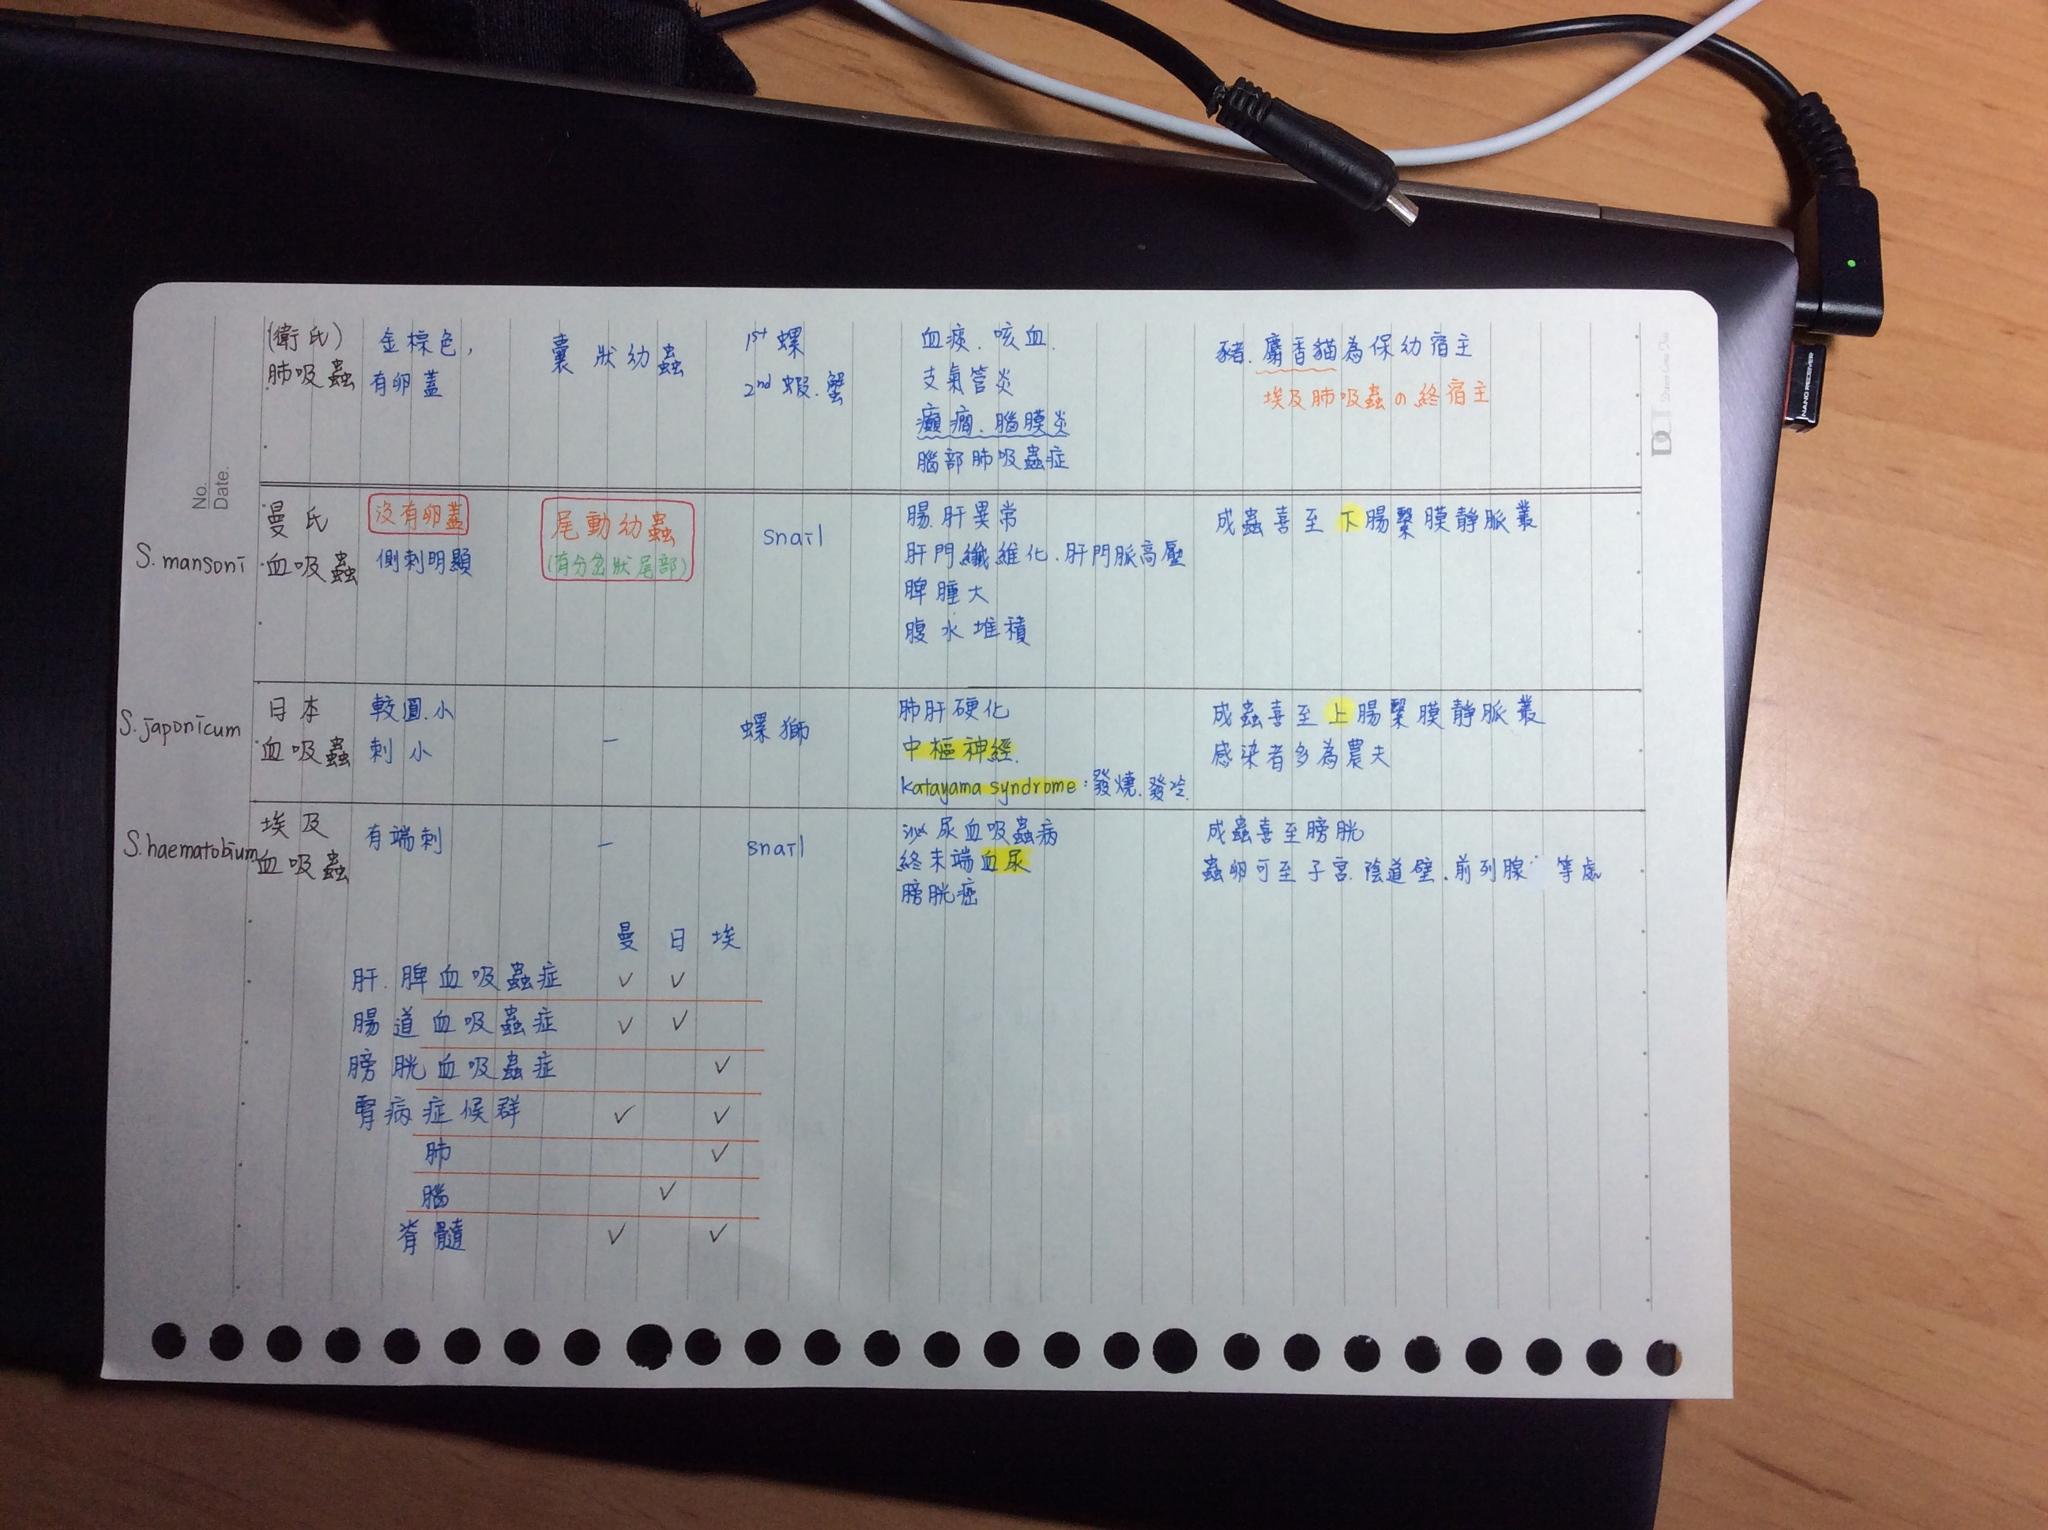 (衛氏)
肺吸蟲
金棕色,
有卵蓋
囊狀幼蟲
1st 螺
2nd 蝦.蟹
血痰.咳血.
支氣管炎
癲癇.腦膜炎
腦部肺吸蟲症
豬.麝香貓為保幼宿主
埃及肺吸蟲の終宿主
No.
Date.
S. mansoni
曼氏
血吸蟲
沒有卵蓋
側刺明顯
尾動幼蟲
(有分岔狀尾部)
snail
腸.肝異常
肝門纖維化.肝門脈高壓
脾腫大
腹水堆積
成蟲喜至下腸繫膜静脈叢
S. japonicum
日本
血吸蟲
較圓.小
刺小
–
螺獅
肺肝硬化
中樞神經.
katayama syndrome:發燒.發冷.
成蟲喜至上腸繫膜静脈叢
感染者多為農夫
S. haematobium
埃及
血吸蟲
有端刺
–
snail
泌尿血吸蟲病
終末端血尿
膀胱癌
成蟲喜至膀胱
蟲卵可至子宮.陰道壁.前列腺 等處
曼 日 埃
肝.脾血吸蟲症 ✓ ✓
腸道血吸蟲症 ✓ ✓
膀胱血吸蟲症 ✓
腎病症候群 ✓ ✓
肺 ✓
腦 ✓
脊髓 ✓ ✓
NANO RECEIVER